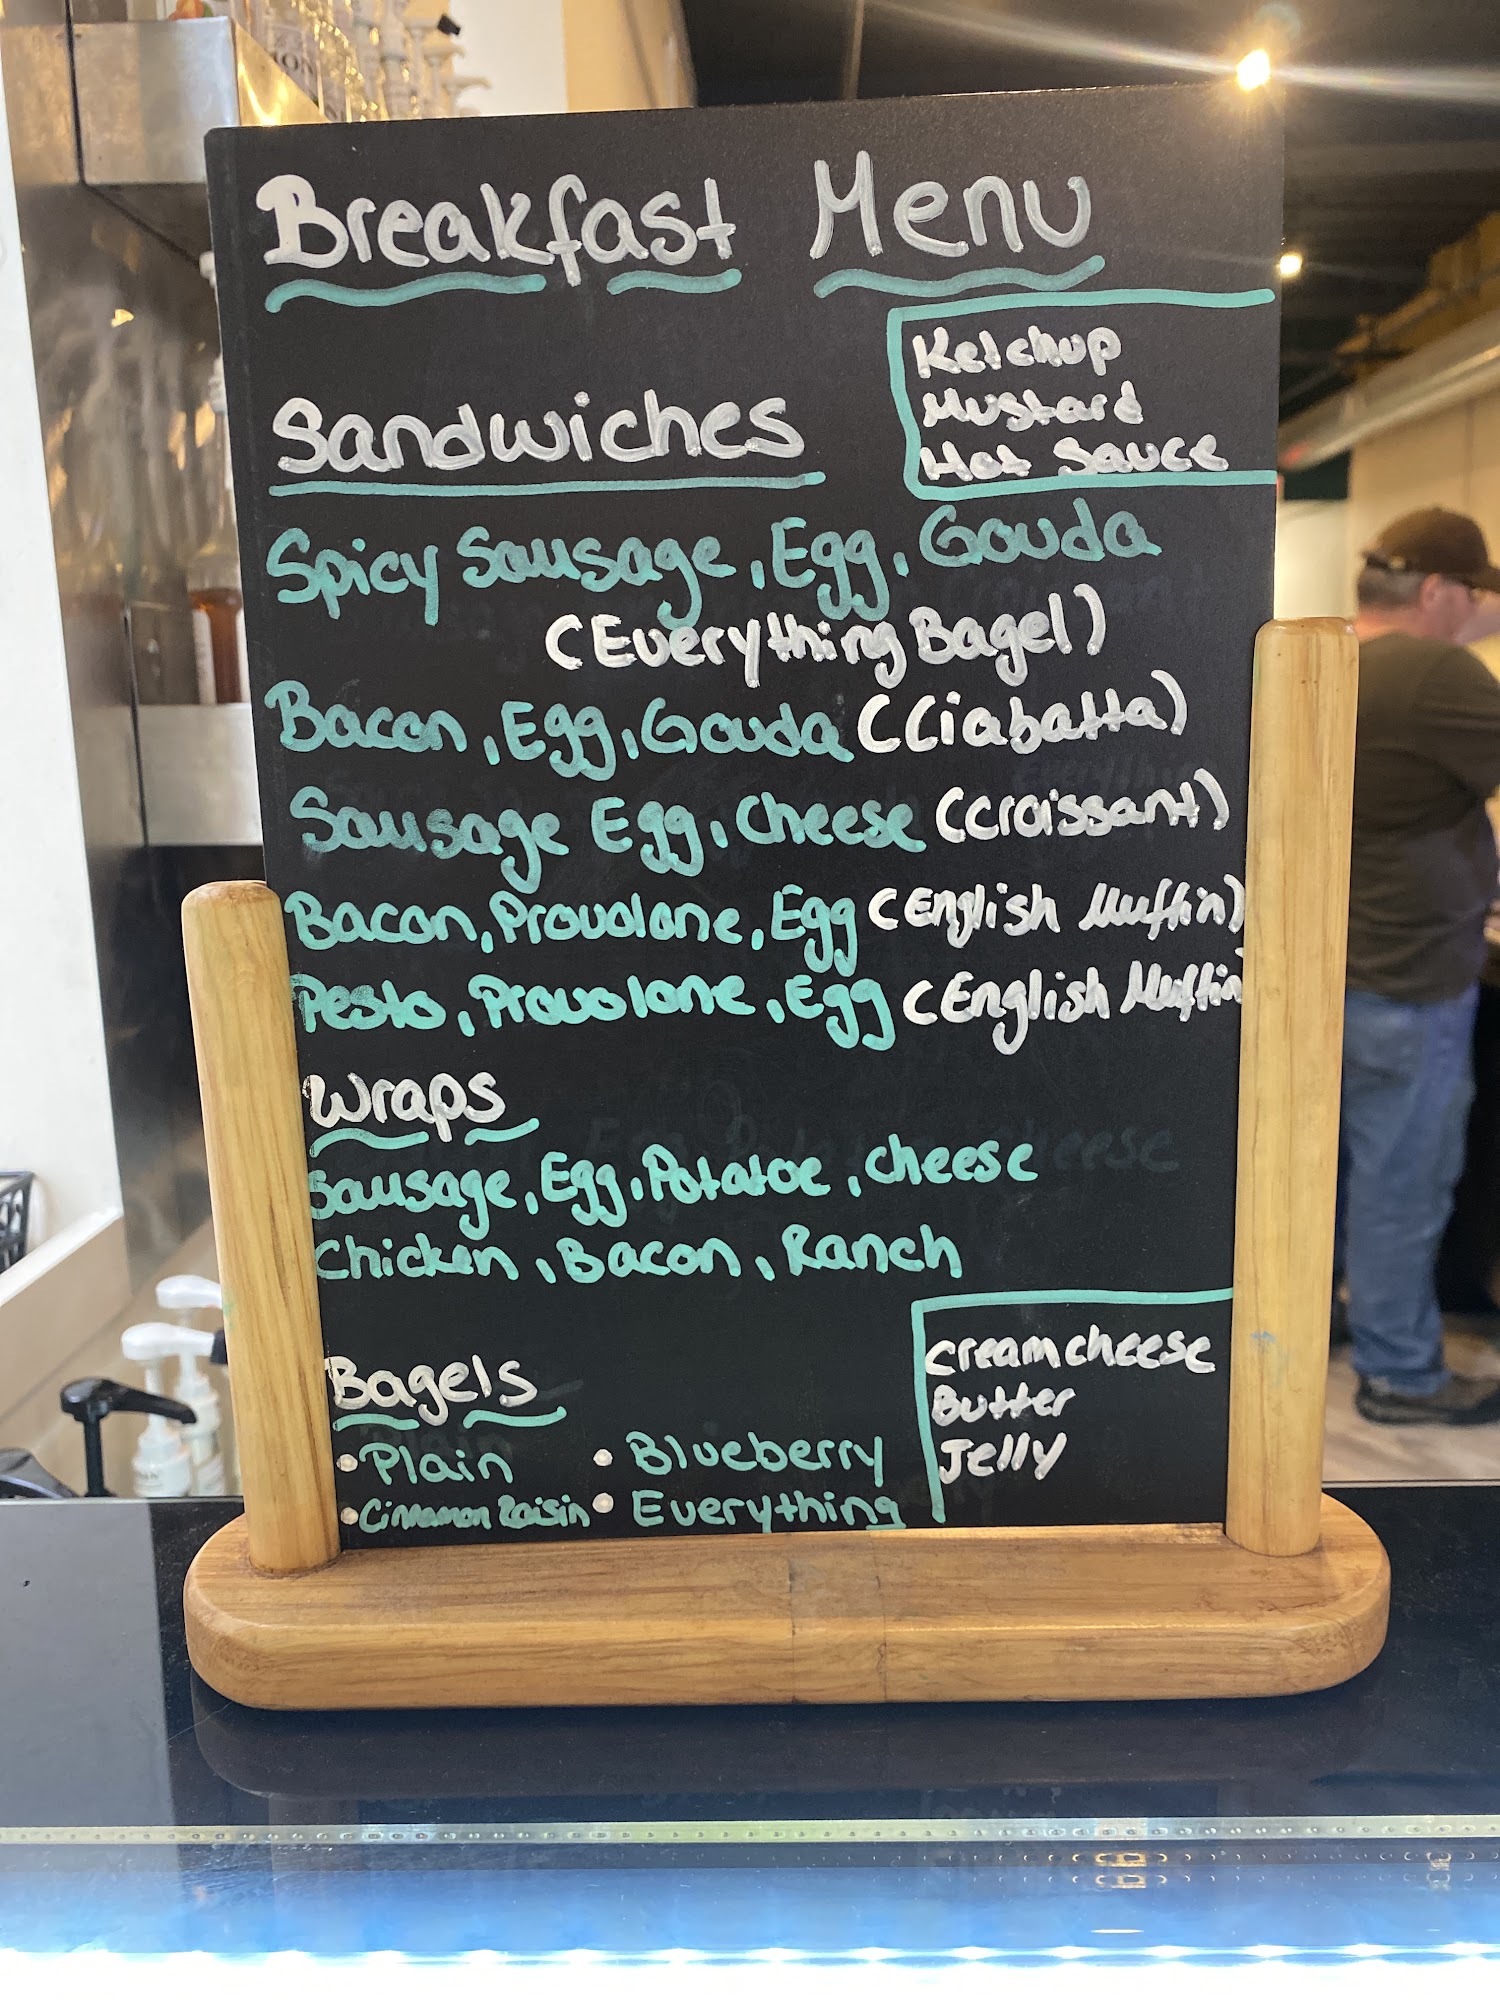 Breakfast Menu
Ketchup
Mustard
Hot Sauce
Sandwiches
Spicy Sausage, Egg, Gouda
(Everything Bagel)
Bacon, Egg, Gouda (Ciabatta)
Sausage Egg, Cheese (Croissant)
Bacon, Provolone, Egg (English Muffin)
Pesto, Provolone, Egg (English Muffin
Wraps
Sausage, Egg, Potatoe, Cheese
Chicken, Bacon, Ranch
Bagels
• Plain • Blueberry
• Cinnamon Raisin • Everything
Creamcheese
Butter
Jelly